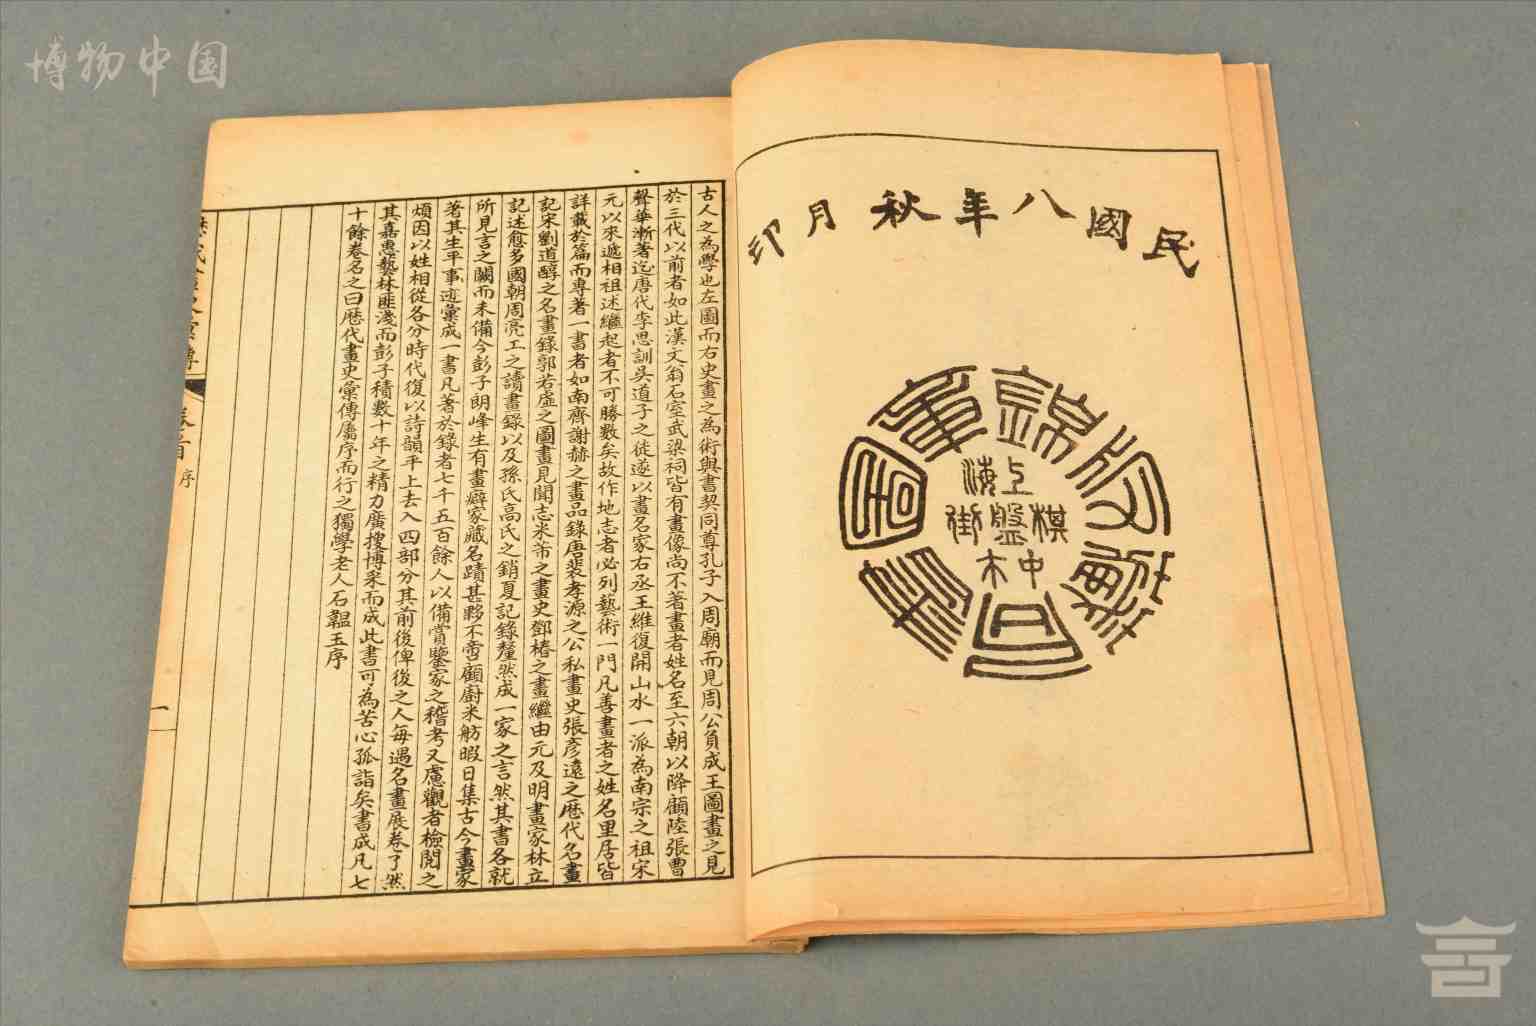 博物中国
民國八年秋月印
上海
棋盤街
中市
錦章圖書局
古人之為學也左圖而右史畫之為術與書契同尊孔子入周廟而見周公負成王圖畫之見
於三代以前者如此漢文翁石室武梁祠皆有畫像尚不著畫者姓名至六朝以降顧陸張曹
聲華漸著迄唐代李思訓吳道子之徒遂以畫名家右丞王維復開山水一派為南宗之祖宋
元以來遞相祖述繼起者不可勝數矣故作地志者必列藝術一門凡善畫者之姓名里居皆
詳載於篇而專著一書者如南齊謝赫之畫品錄唐裴孝源之公私畫史張彥遠之歷代名畫
記宋劉道醇之名畫錄郭若虛之圖畫見聞志米芾之畫史鄧椿之畫繼由元及明畫家林立
記述愈多國朝周亮工之讀畫錄以及孫氏高氏之銷夏記錄釐然成一家之言然其書各就
所見言之闕而未備今彭子朗峰生有畫癖家藏名蹟甚夥不啻顧廚米舫暇日集古今畫家
著其生平事迹彙成一書凡著於錄者七千五百餘人以備賞鑒家之稽考又慮觀者檢閱之
煩因以姓相從各分時代復以詩韻平上去入四部分其前後俾後之人每遇名畫展卷了然
其嘉惠藝林匪淺而彭子積數十年之精力廣搜博采而成此書可為苦心孤詣矣書成凡七
十餘卷名之曰歷代畫史彙傳屬序而行之獨學老人石韞玉序
序
一